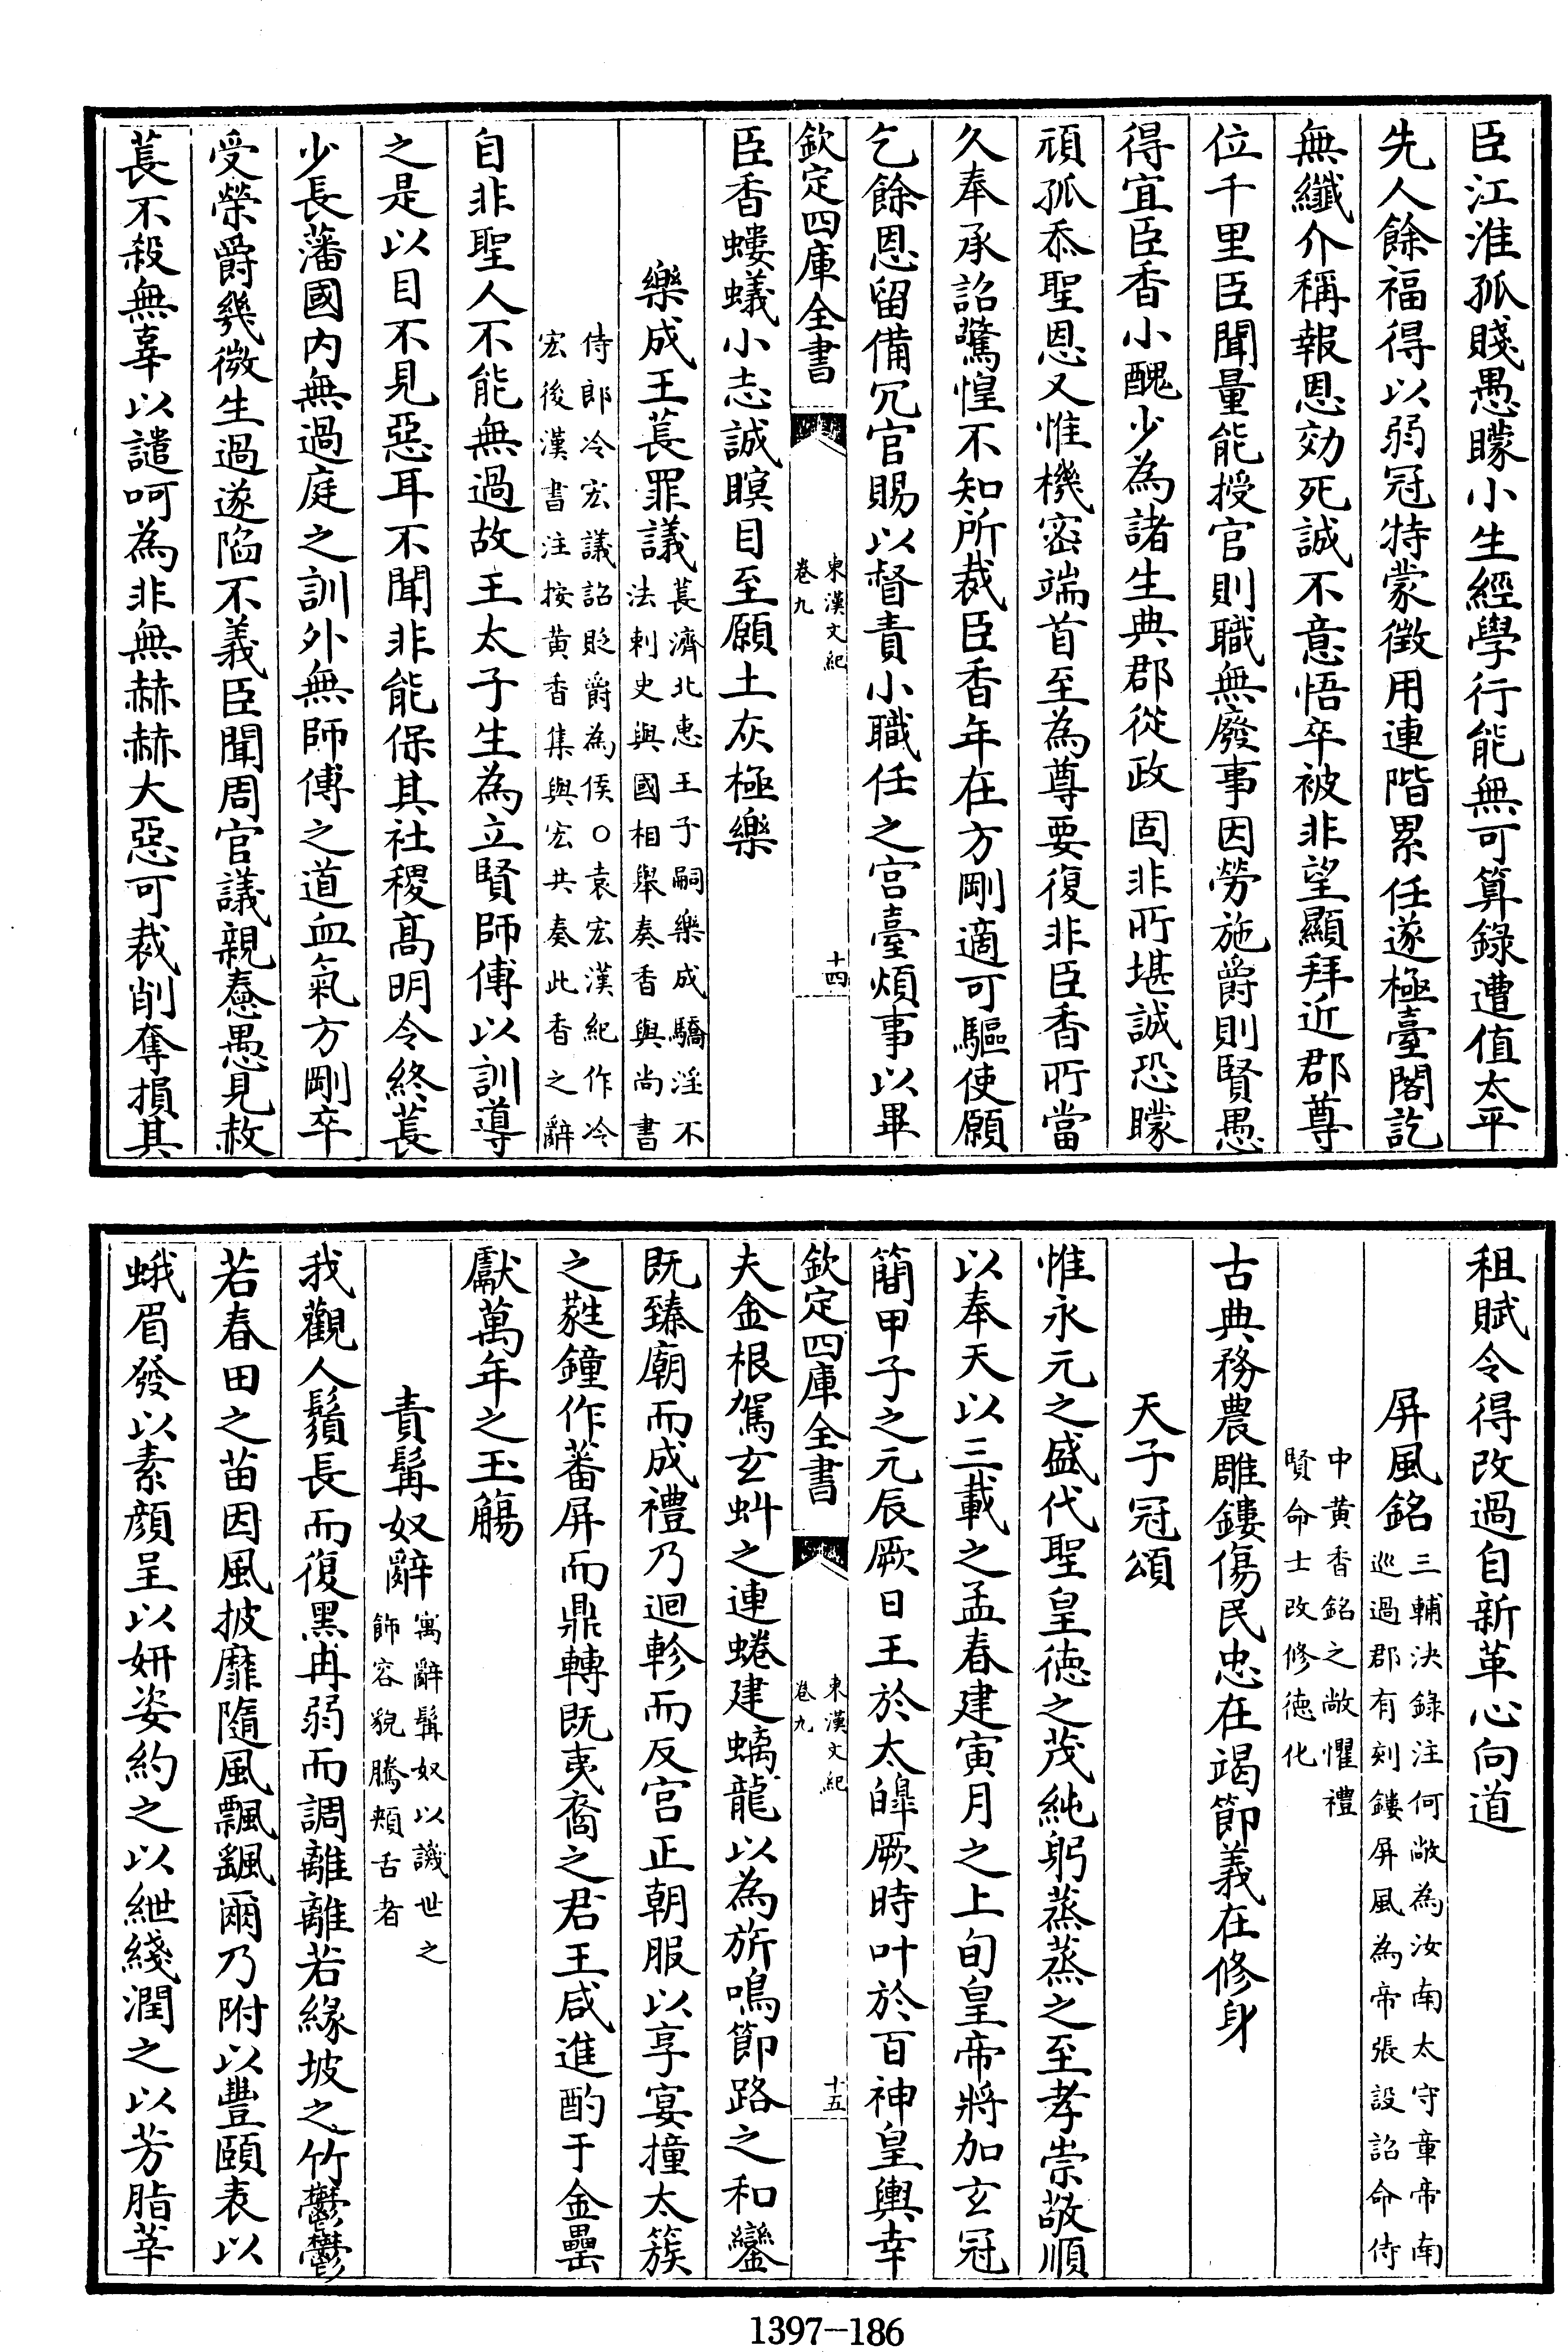 臣江淮孤賤愚矇小生經學行能無可算錄遭值太平
先人餘福得以弱冠特蒙徴用連階累任遂極臺閣訖
無纖介稱報恩効死誠不意悟卒被非望顯拜近郡尊
位千里臣聞量能授官則職無廢事因勞施爵則賢愚
得宜臣香小醜少為諸生典郡從政固非所堪誠恐矇
頑孤忝聖恩又惟機密端首至為尊要復非臣香所當
久奉承詔驚惶不知所裁臣香年在方剛適可驅使願
乞餘恩留備冗官賜以督責小職任之宮臺煩事以畢
欽定四庫全書
東漢文紀
卷九
十四
臣香螻蟻小志誠瞑目至願土灰極樂
樂成王萇罪議
萇濟北惠王子嗣樂成驕淫不
法刺史與國相舉奏香與尚書
侍郎冷宏議詔貶爵為侯○袁宏漢紀作冷
宏後漢書注按黄香集與宏共奏此香之辭
自非聖人不能無過故王太子生為立賢師傅以訓導
之是以目不見惡耳不聞非能保其社稷髙明令終萇
少長藩國内無過庭之訓外無師傅之道血氣方剛卒
受榮爵幾微生過遂陷不義臣聞周官議親惷愚見赦
萇不殺無辜以譴呵為非無赫赫大惡可裁削奪損其
租賦令得改過自新革心向道
屏風銘
三輔決錄注何敞為汝南太守章帝南
巡過郡有刻鏤屏風為帝張設詔命侍
中黄香銘之敞懼禮
賢命士改修徳化
古典務農雕鏤傷民忠在竭節義在修身
天子冠頌
惟永元之盛代聖皇徳之茂純躬蒸蒸之至孝崇敬順
以奉天以三載之孟春建寅月之上旬皇帝將加玄冠
簡甲子之元辰厥日王於太皥厥時叶於百神皇輿幸
欽定四庫全書
東漢文紀
卷九
十五
夫金根駕玄虯之連蜷建螭龍以為旂鳴節路之和鑾
既臻廟而成禮乃迴軫而反宫正朝服以享宴撞太簇
之蕤鐘作蕃屏而鼎轉既夷裔之君王咸進酌于金罍
獻萬年之玉觴
責髯奴辭
寓辭髯奴以譏世之
飾容貌騰頰舌者
我觀人鬚長而復黑冉弱而調離離若緣坡之竹鬱鬱
若春田之苗因風披靡隨風飄颻爾乃附以豐頤表以
蛾眉發以素顔呈以妍姿約之以紲綫潤之以芳脂莘
1397—186